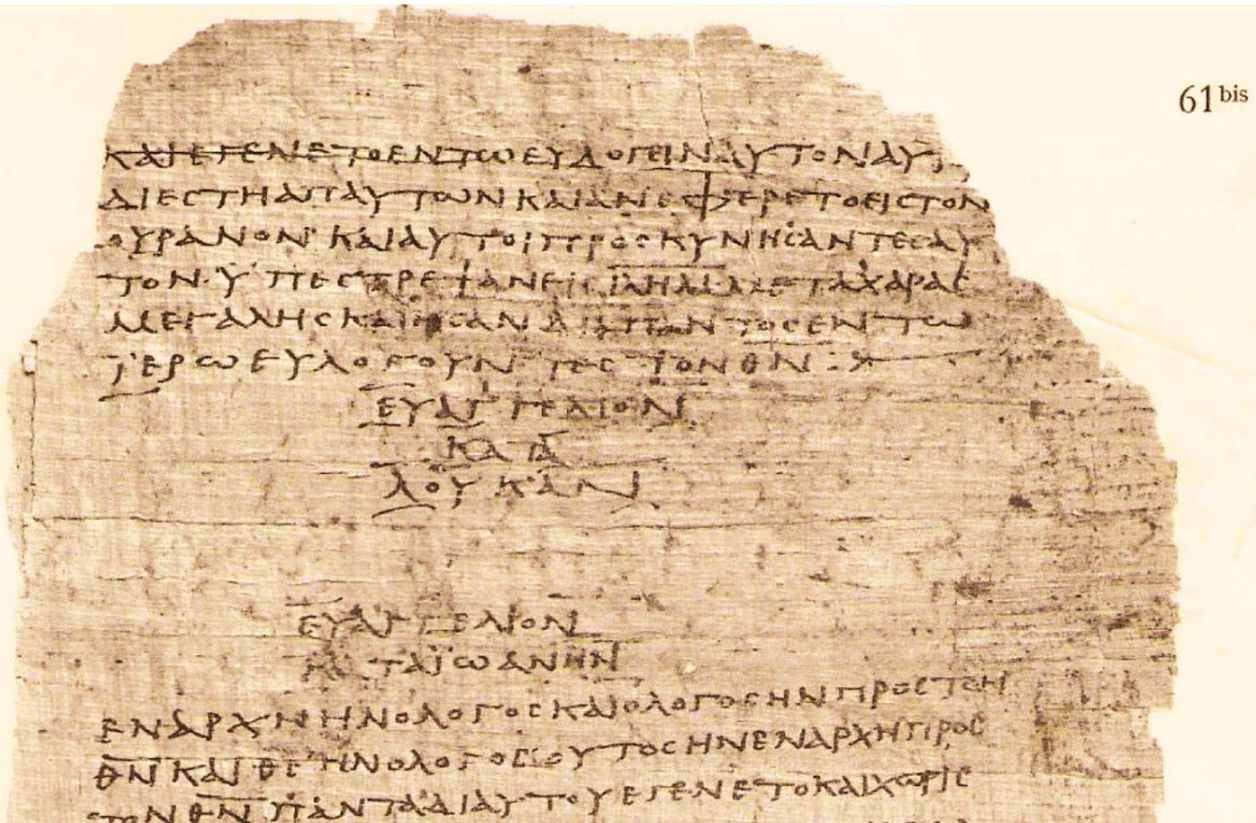 61bis
ΚΑΙΕΓΕΝΕΤΟΕΝΤΩΕΥΛΟΓΕΙΝΑΥΤΟΝΑΥ
ΔΙΕCΤΗΑΠΑΥΤΩΝΚΑΙΑΝΕΦΕΡΕΤΟΕΙCΤΟΝ
ΟΥΡΑΝΟΝ ΚΑΙΑΥΤΟΙΠΡΟCΚΥΝΗCΑΝΤΕCΑΥ
ΤΟΝ·ΫΠΕCΤΡΕΨΑΝΕΙC ΙΛΗΜ ΜΕΤΑΧΑΡΑC
ΜΕΓΑΛΗCΚΑΙΗCΑΝΔΙΑΠΑΝΤΟCΕΝΤΩ
ΪΕΡΩΕΥΛΟΓΟΥΝΤΕC ΤΟΝΘΝ:
ΕΥΑΓΓΕΛΙΟΝ
ΚΑΤΑ
ΛΟΥΚΑΝ
ΕΥΑΓΓΕΛΙΟΝ
ΚΑΤΑΪΩΑΝΗΝ
ΕΝΑΡΧΗΗΝΟΛΟΓΟCΚΑΙΟΛΟΓΟCΗΝΠΡΟCΤΟΝ
ΘΝΚΑΙΘCΗΝΟΛΟΓΟC·ΟΥΤΟCΗΝΕΝΑΡΧΗΠΡΟC
ΤΟΝΘΝΠΑΝΤΑΔΙΑΥΤΟΥΕΓΕΝΕΤΟΚΑΙΧΩΡΙC